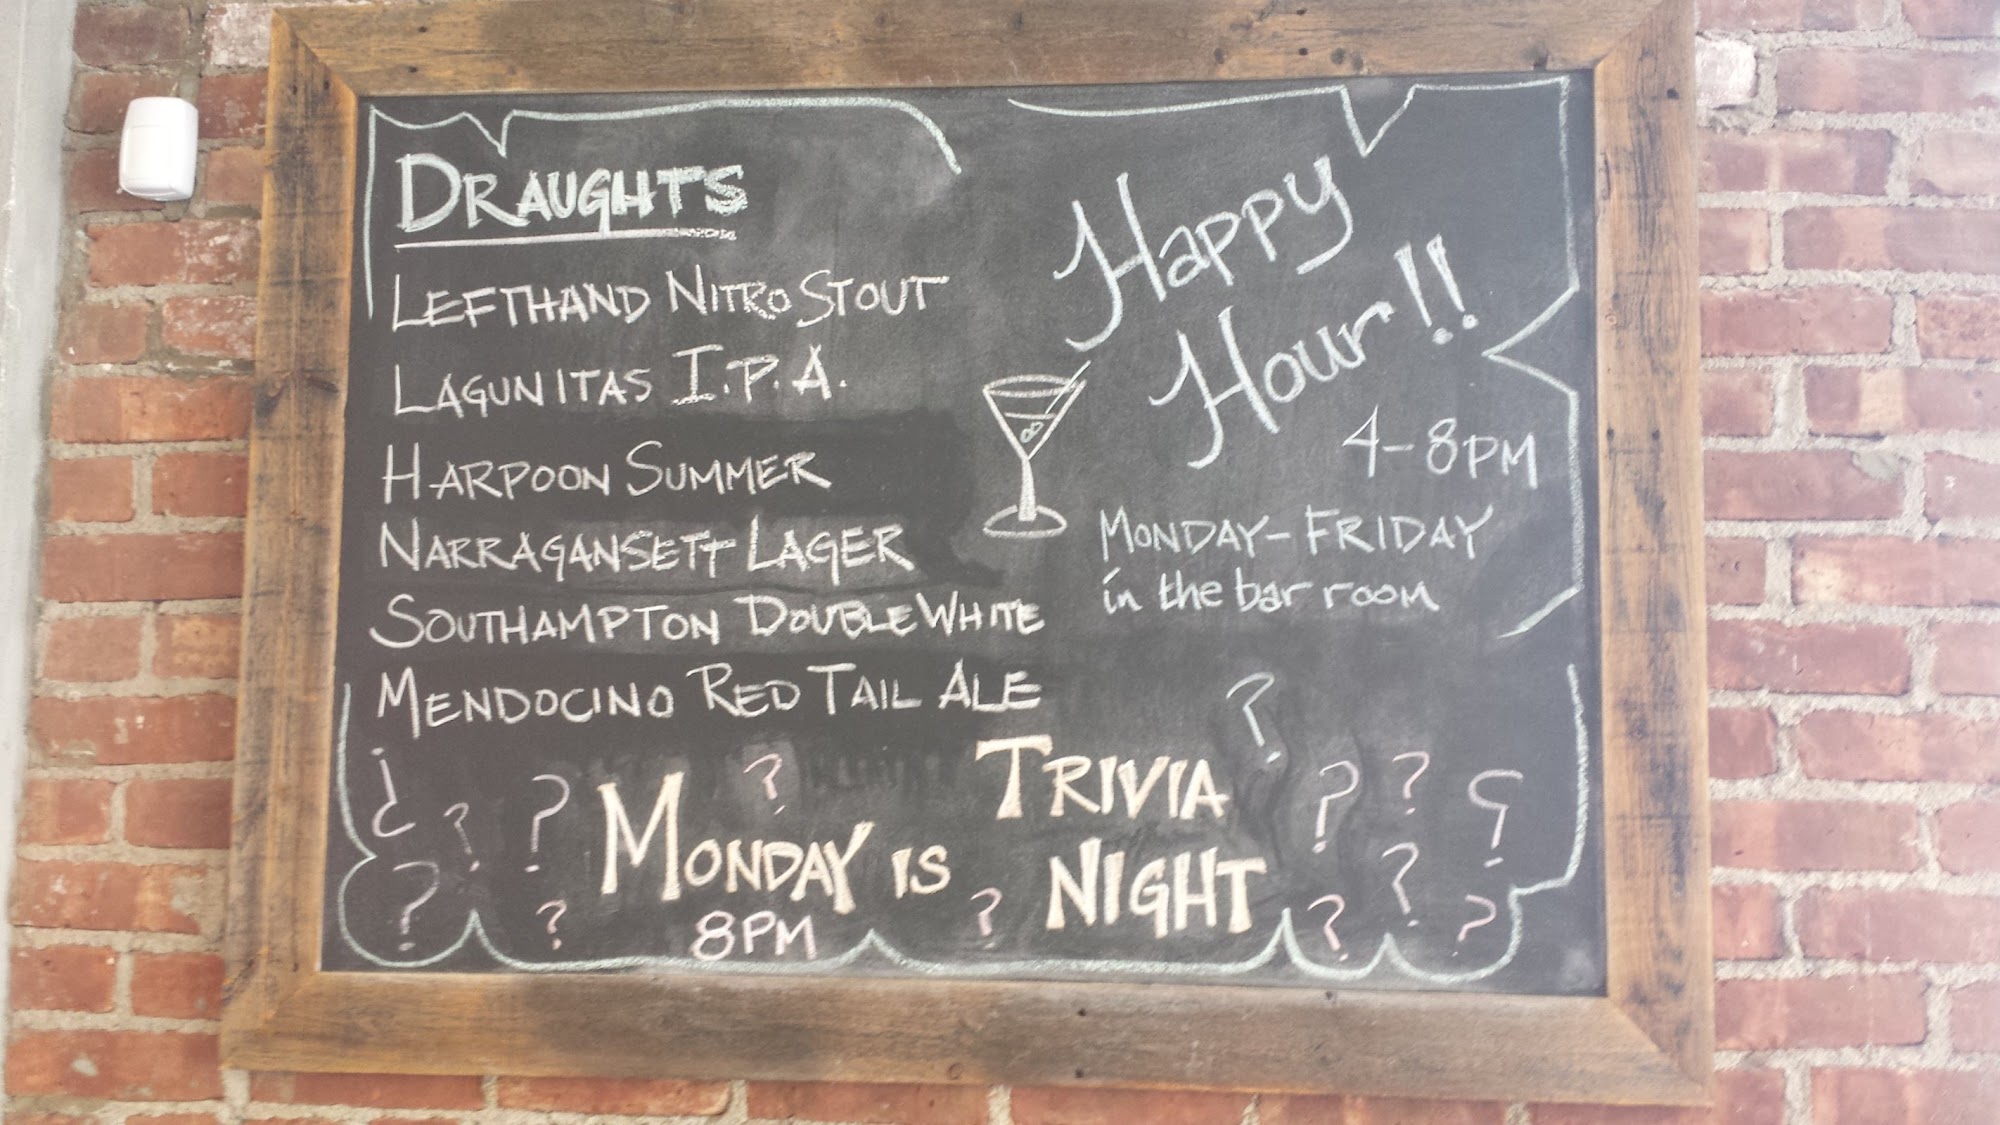 DRAUGHTS
LEFTHAND NITRO STOUT
LAGUNITAS I.P.A.
HARPOON SUMMER
NARRAGANSETT LAGER
SOUTHAMPTON DOUBLE WHITE
MENDOCINO RED TAIL ALE
Happy
Hour!!
4-8PM
MONDAY-FRIDAY
in the bar room
MONDAY IS
8PM
TRIVIA
NIGHT